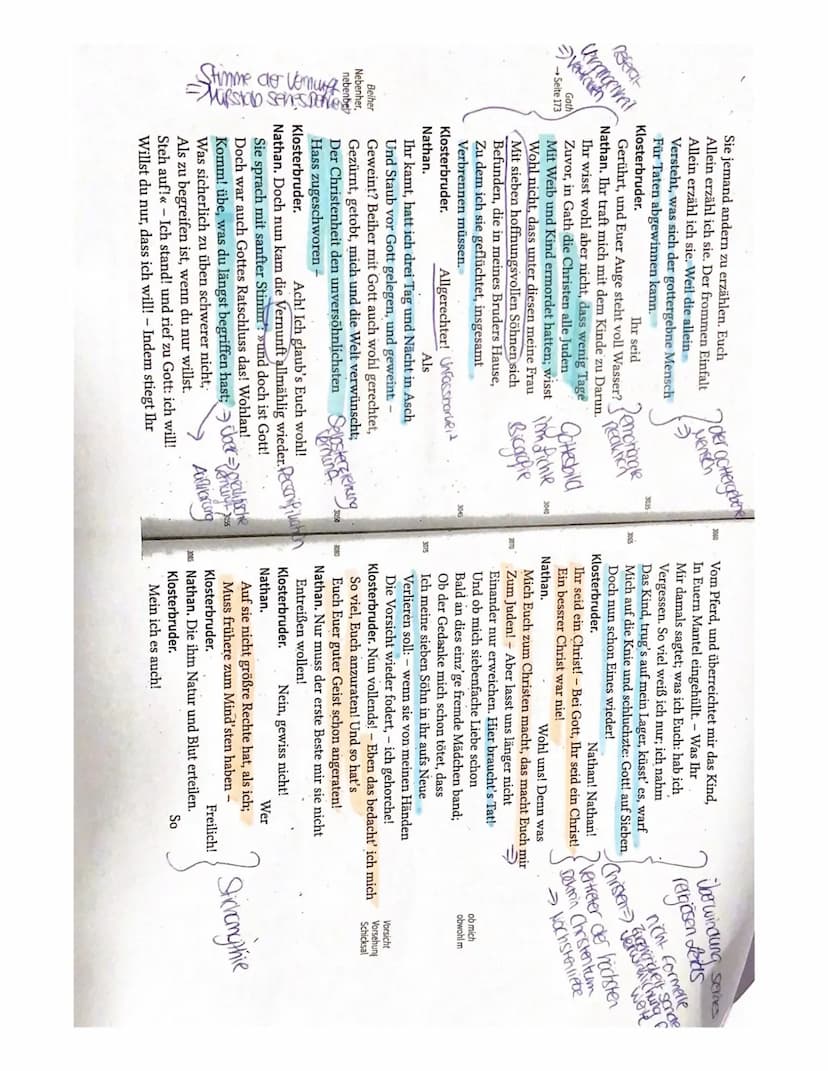 Sie jemand andern zu erzählen. Euch
Allein erzähl ich sie. Der frommen Einfalt
Allein erzähl ich sie. Weil die allein
Versteht, was sich der gottergebne Mensch
Für Taten abgewinnen kann.
der gottergebene
Mensch
Klosterbruder. Ihr seid
3035
Gerührt, und Euer Auge steht voll Wasser?
emotionale
Nathan. Ihr traft mich mit dem Kinde zu Darun.
Ihr wisst wohl aber nicht, dass wenig Tage
Zuvor, in Gath die Christen alle Juden
Gath
→ Seite 173
Mit Weib und Kind ermordet hatten; wisst
3040
Wohl nicht, dass unter diesen meine Frau
Mit sieben hoffnungsvollen Söhnen sich
Befunden, die in meines Bruders Hause,
Biografie
Zu dem ich sie geflüchtet, insgesamt
Verbrennen müssen.
3045
Klosterbruder. Allgerechter!
Unfassbarkeit
Nathan. Als
Ihr kamt, hatt ich drei Tag und Nächt in Asch
Und Staub vor Gott gelegen, und geweint. –
Geweint? Beiher mit Gott auch wohl gerechtet,
Beiher
Nebenher,
nebenbei
Gezürnt, getobt, mich und die Welt verwünscht;
3050
Der Christenheit den unversöhnlichsten
Hass zugeschworen –
Klosterbruder. Ach! Ich glaub's Euch wohl!
Nathan. Doch nun kam die Vernunft allmählig wieder.
Sie sprach mit sanfter Stimm': »und doch ist Gott!
Doch war auch Gottes Ratschluss das! Wohlan!
3055
Komm! übe, was du längst begriffen hast;
Stimme der Vernunft
Was sicherlich zu üben schwerer nicht,
Als zu begreifen ist, wenn du nur willst.
Aufklärung
Steh auf!« – Ich stand! und rief zu Gott: ich will!
Willst du nur, dass ich will! – Indem stiegt Ihr
3060
Vom Pferd, und überreichtet mir das Kind,
In Euern Mantel eingehüllt. – Was Ihr
Mir damals sagtet; was ich Euch: hab ich
Vergessen. So viel weiß ich nur; ich nahm
Das Kind, trug's auf mein Lager, küsst' es, warf
3065
Mich auf die Knie und schluchzte: Gott! auf Sieben
Doch nun schon Eines wieder!
Überwindung seines
religiösen Leids
Klosterbruder. Nathan! Nathan!
Ihr seid ein Christ! – Bei Gott, Ihr seid ein Christ!
Ein bessrer Christ war nie!
nicht formelle
Christen =>
Vertreter der höchsten
=> Nächstenliebe
Nathan. Wohl uns! Denn was
Mich Euch zum Christen macht, das macht Euch mir
3070
Zum Juden! – Aber lasst uns länger nicht
Einander nur erweichen. Hier braucht's Tat!
Und ob mich siebenfache Liebe schon
ob mich
obwohl m
Bald an dies einz'ge fremde Mädchen band;
Ob der Gedanke mich schon tötet, dass
3075
Ich meine sieben Söhn in ihr aufs Neue
Verlieren soll: – wenn sie von meinen Händen
Die Vorsicht wieder fodert, – ich gehorche!
Vorsicht
Vorsehung
Schicksal
Klosterbruder. Nun vollends! – Eben das bedacht' ich mich
So viel, Euch anzuraten! Und so hat's
3080
Euch Euer guter Geist schon angeraten!
Nathan. Nur muss der erste Beste mir sie nicht
Entreißen wollen!
Klosterbruder. Nein, gewiss nicht!
Nathan. Wer
Auf sie nicht größre Rechte hat, als ich;
Muss frühere zum Mind'sten haben –
Klosterbruder. Freilich!
3085
Nathan. Die ihm Natur und Blut erteilen.
Klosterbruder. So
Mein ich es auch!
Stichomythie